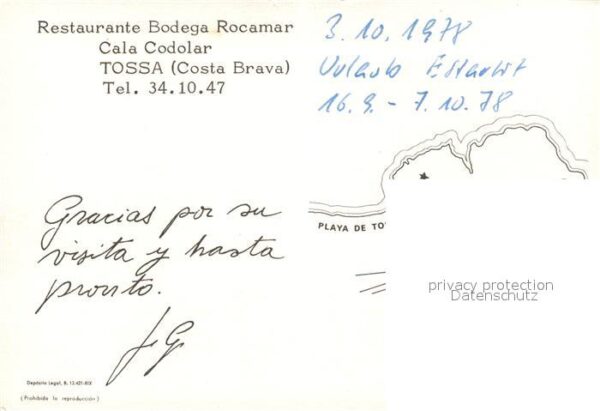 Restaurante Bodega Rocamar
Cala Codolar
TOSSA (Costa Brava)
Tel. 34.10.47
3.10.1978
Urlaub Estartit
16.9. - 7.10.78
PLAYA DE TO
Gracias por su
visita y hasta
pronto.
J.G.
privacy protection
Datenschutz
Depósito Legal, B. 13.421-XIX
(Prohibida la reproducción)